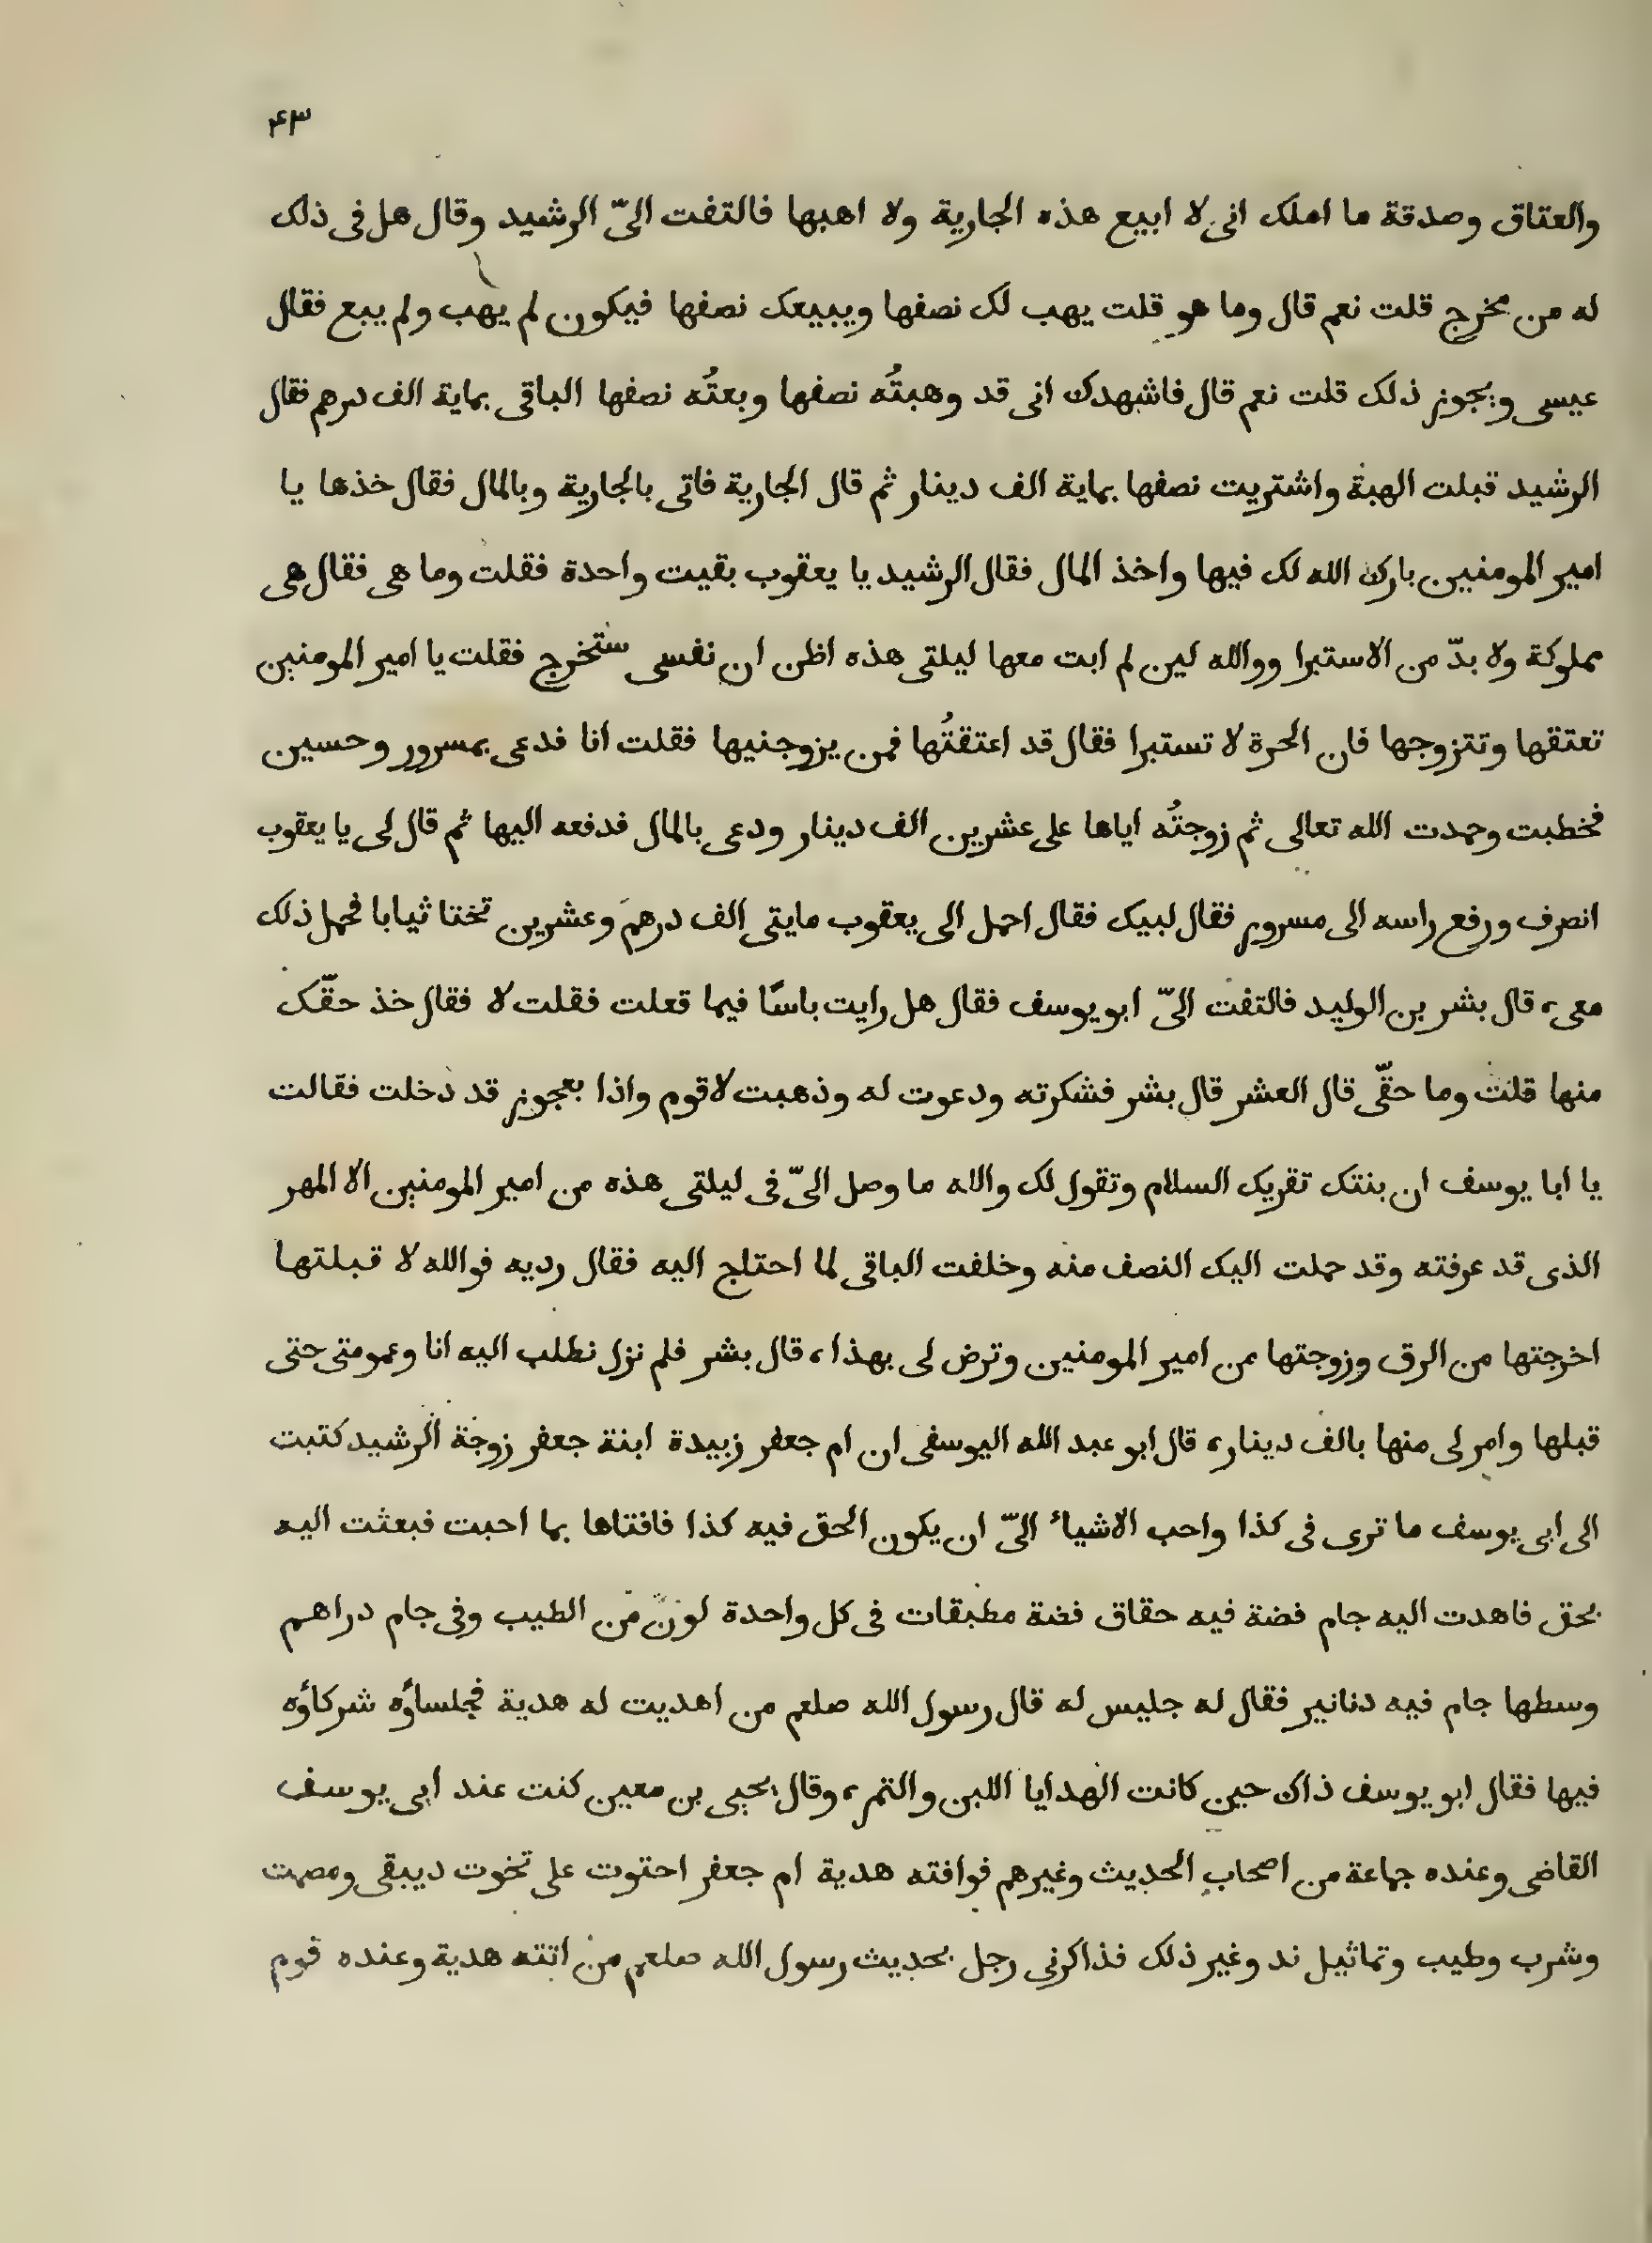 ۴۳
والعتاق وصدقة ما املك انى لا ابيع هذه الجارية ولا اهبها فالتفت الىّ الرشيد وقال هل فى ذلك
له من مخرج قلت نعم قال وما هو قلت يهب لك نصفها ويبيعك نصفها فيكون لم يهب ولم يبع فقال
عيسى ويجوز ذلك قلت نعم قال فاشهدك انى قد وهبتُه نصفها وبعتُه نصفها الباقى بماية الف درهم فقال
الرشيد قبلت الهبة واشتريت نصفها بماية الف دينار ثم قال الجارية فاتى بالجارية وبالمال فقال خذها يا
امير المومنين بارك الله لك فيها واخذ المال فقال الرشيد يا يعقوب بقيت واحدة فقلت وما هى فقال هى
مملوكة ولا بدّ من الاستبرا ووالله لين لم ابت معها ليلتى هذه اظن ان نفسى ستخرج فقلت يا امير المومنين
تعتقها وتتزوجها فان الحرة لا تستبرا فقال قد اعتقتُها فمن يزوجنيها فقلت انا فدعى بمسرور وحسين
فخطبت وحمدت الله تعالى ثم زوجتُه اياها على عشرين الف دينار ودعى بالمال فدفعه اليها ثم قال لى يا يعقوب
انصرف ورفع راسه الى مسرور فقال لبيك فقال احمل الى يعقوب مايتى الف درهم وعشرين تختا ثيابا فحمل ذلك
معى، قال بشر بن الوليد فالتفت الىّ ابو يوسف فقال هل رايت باسًا فيما فعلت فقلت لا فقال خذ حقّك
منها قلت وما حقّى قال العشر قال بشر فشكرته ودعوت له وذهبت لاقوم واذا بعجوز قد دخلت فقالت
يا ابا يوسف ان بنتك تقريك السلام وتقول لك والله ما وصل الىّ فى ليلتى هذه من امير المومنين الا المهر
الذى قد عرفته وقد حملت اليك النصف منه وخلفت الباقى لما احتاج اليه فقال رديه فوالله لا قبلتها
اخرجتها من الرق وزوجتها من امير المومنين وترض لى بهذا، قال بشر فلم نزل نطلب اليه انا وعمومتى حتى
قبلها وامر لى منها بالف دينار، قال ابو عبد الله اليوسفى ان ام جعفر زبيدة ابنة جعفر زوجة الرشيد كتبت
الى ابى يوسف ما ترى فى كذا واحب الاشياء الىّ ان يكون الحق فيه كذا فافتاها بما احبت فبعثت اليه
بحق فاهدت اليه جام فضة فيه حقاق فضة مطبقات فى كل واحدة لون من الطيب وفى جام دراهم
وسطها جام فيه دنانير فقال له جليس له قال رسول الله صلعم من اهديت له هدية فجلساؤه شركاؤه
فيها فقال ابو يوسف ذاك حين كانت الهدايا اللبن والتمر، وقال يحيى بن معين كنت عند ابى يوسف
القاضى وعنده جماعة من اصحاب الحديث وغيرهم فوافته هدية ام جعفر احتوت على تخوت ديبقى ومصمت
وشرب وطيب وتماثيل ند وغير ذلك فذاكرنى رجل بحديث رسول الله صلعم من اتته هدية وعنده قوم